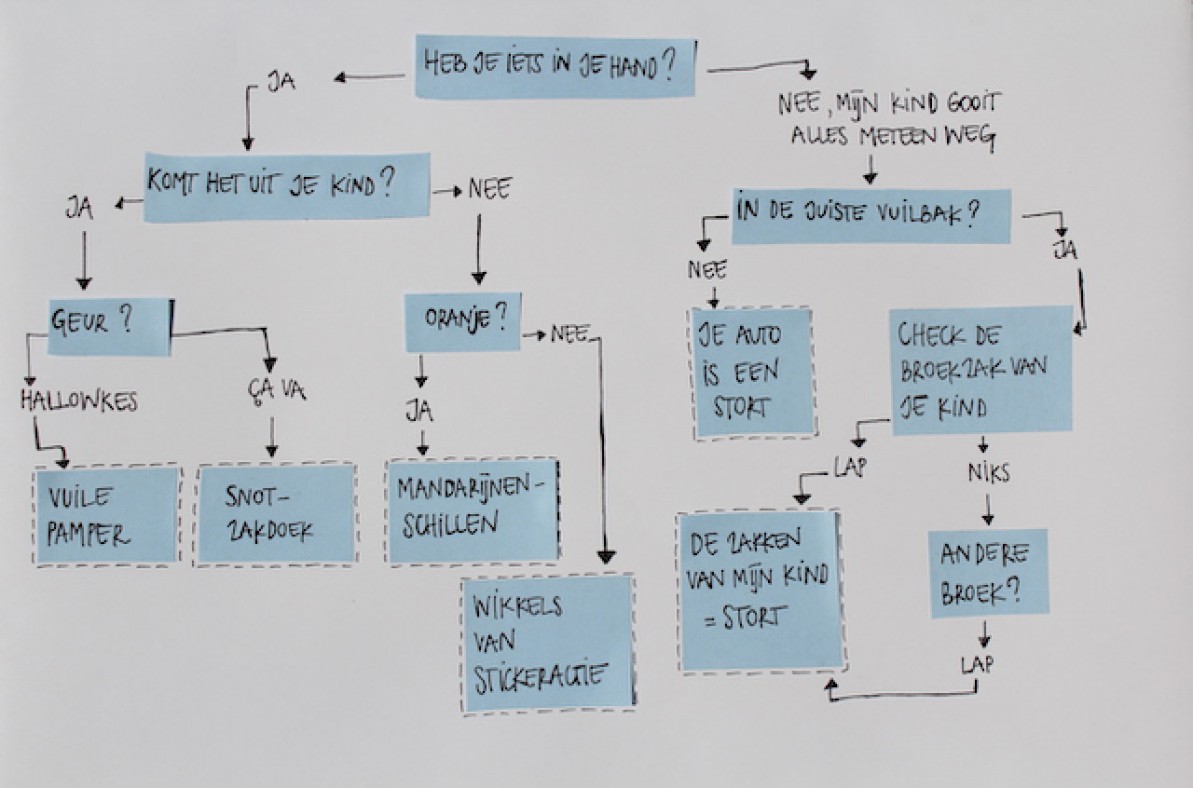 HEB JE IETS IN JE HAND?
JA
NEE, MIJN KIND GOOIT
ALLES METEEN WEG
KOMT HET UIT JE KIND?
NEE
JA
IN DE JUISTE VUILBAK?
NEE
JA
GEUR?
ORANJE?
NEE
JE AUTO
IS EEN
STORT
CHECK DE
BROEKZAK VAN
JE KIND
HALLOWKES
ÇA VA
JA
LAP
NIKS
VUILE
PAMPER
SNOT-
ZAKDOEK
MANDARIJNEN-
SCHILLEN
DE ZAKKEN
VAN MIJN KIND
= STORT
ANDERE
BROEK?
WIKKELS
VAN
STICKERACTIE
LAP